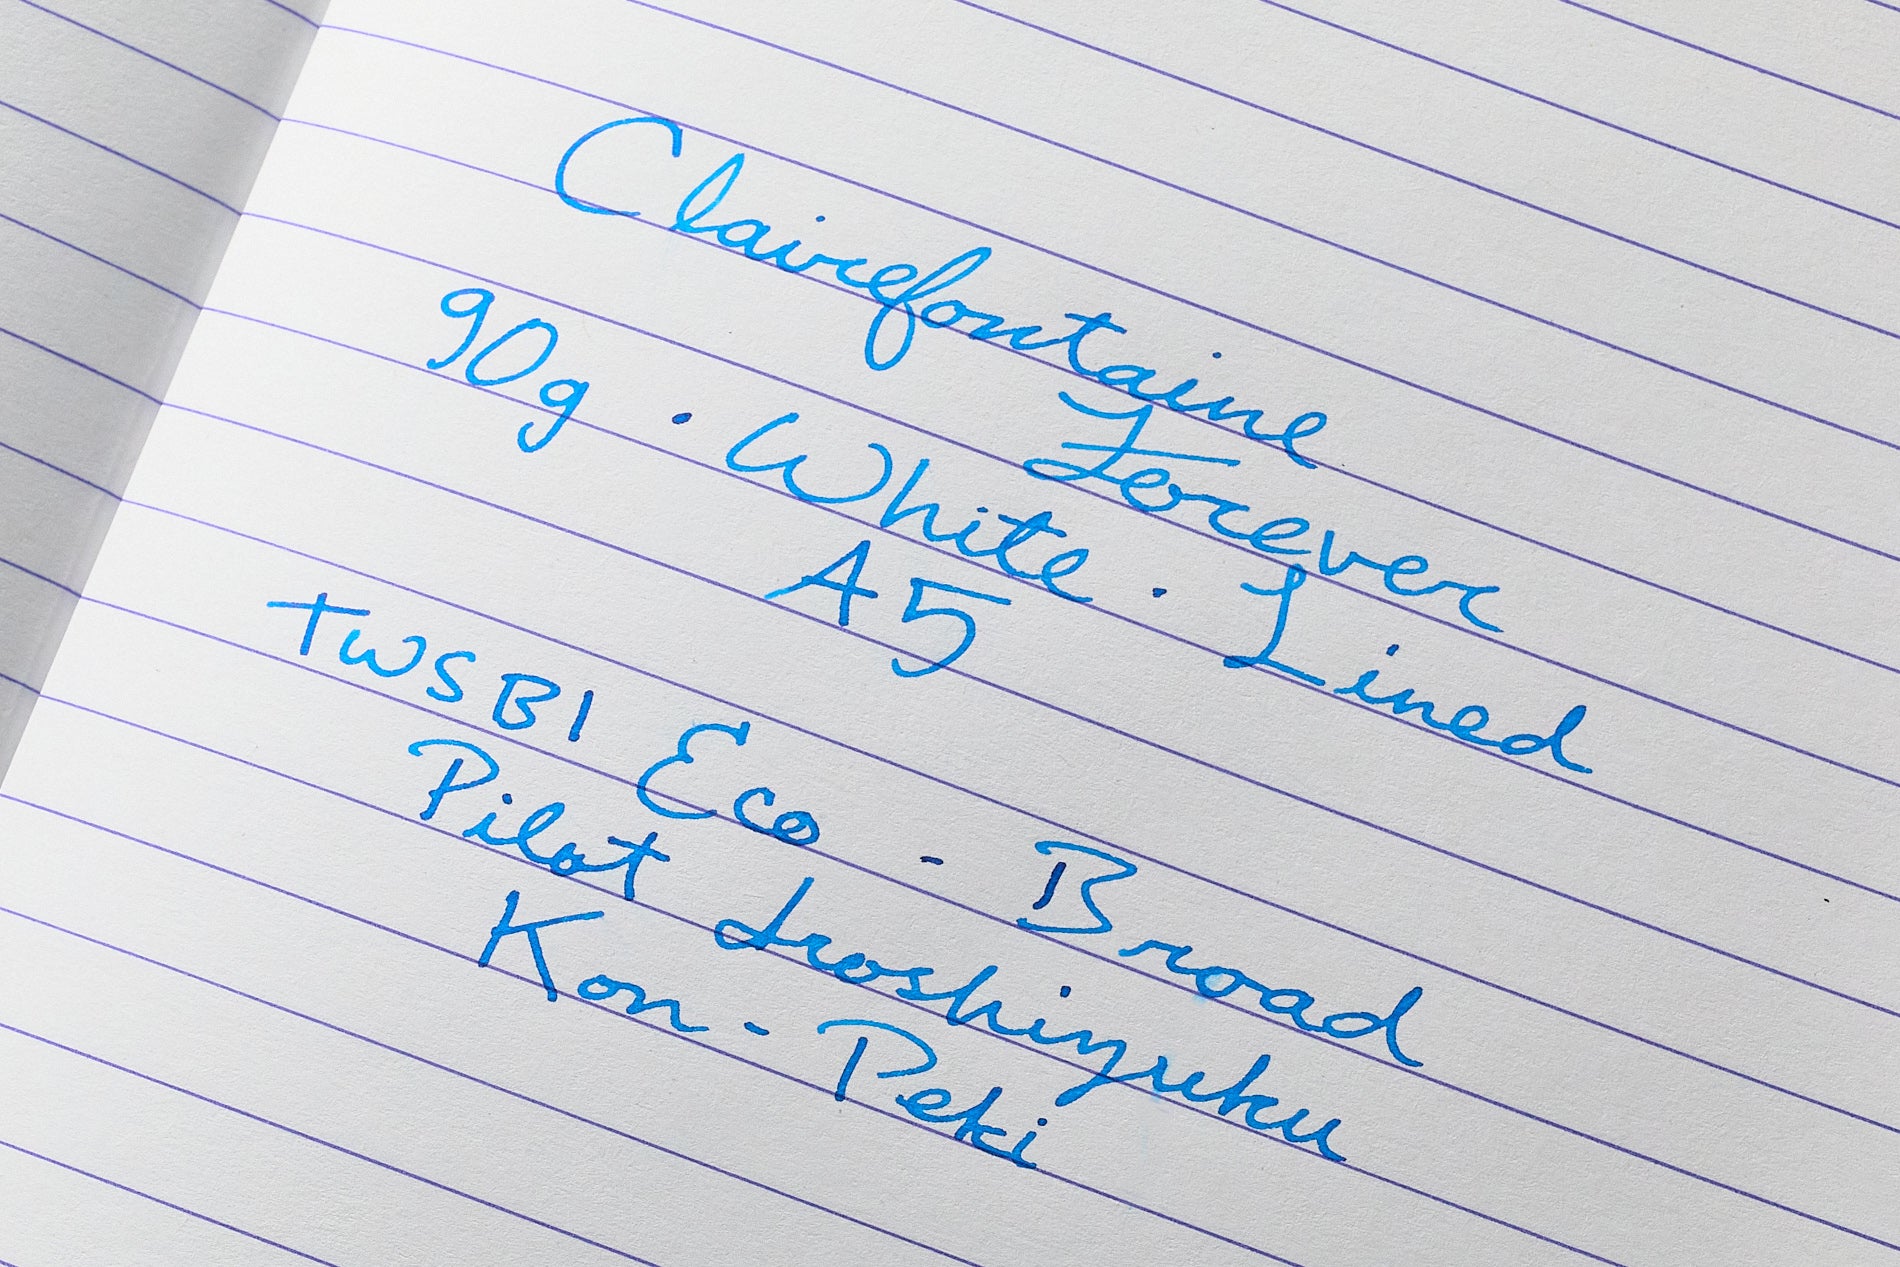 Clairefontaine
Forever
90g · White · Lined
A5
TWSBI Eco - Broad
Pilot Iroshizuku
Kon-Peki